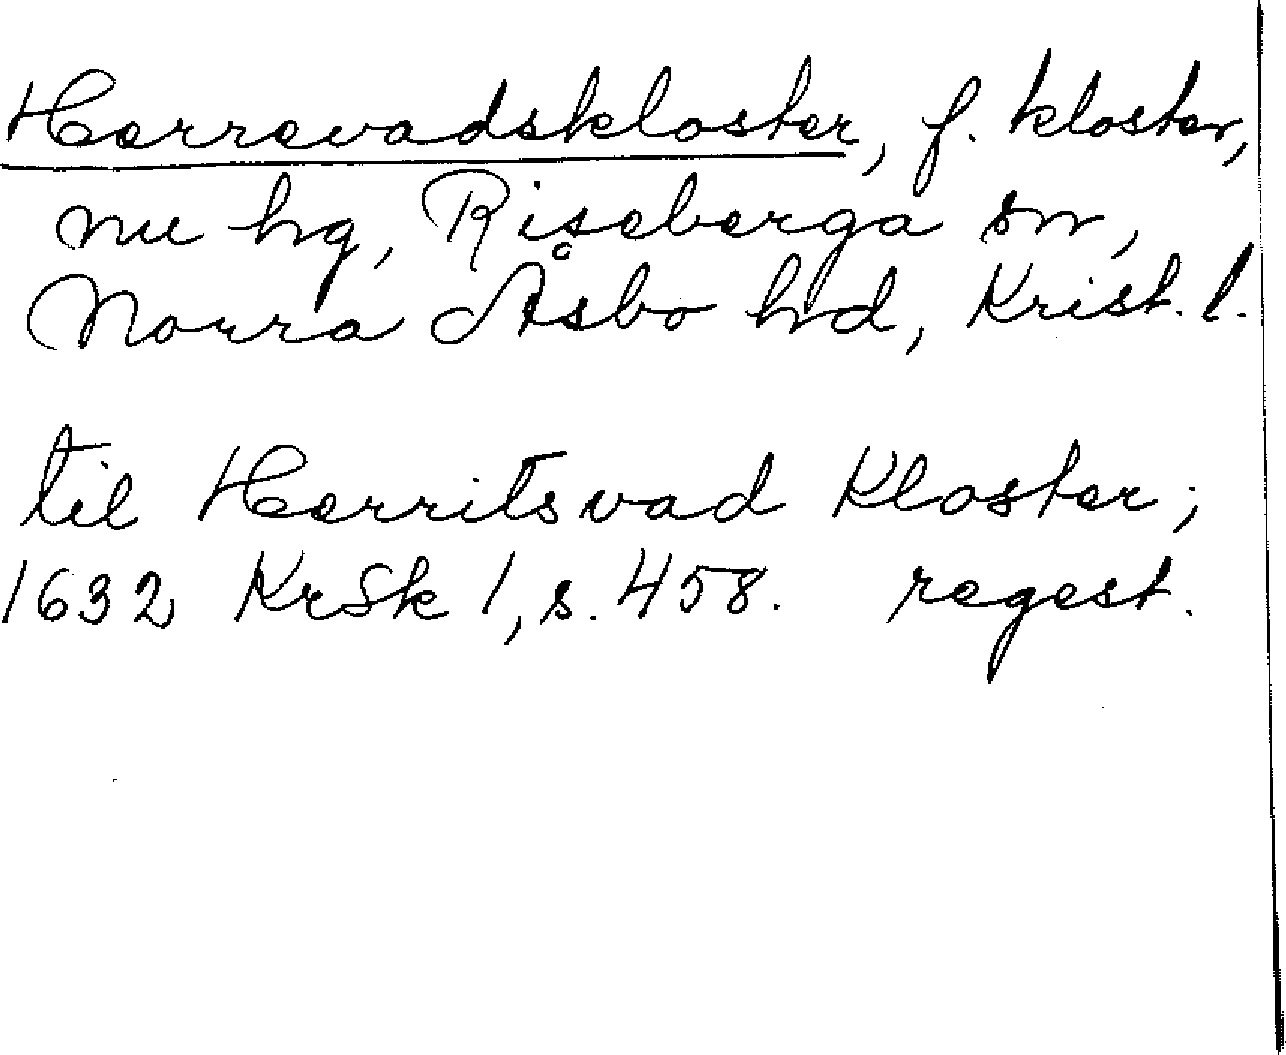 Herrevadskloster, f. kloster,
nu hg, Riseberga sn,
Norra Åsbo hd, Krist. l.
til Herritsvad Kloster;
1632 KrSk 1, s. 458. regest.